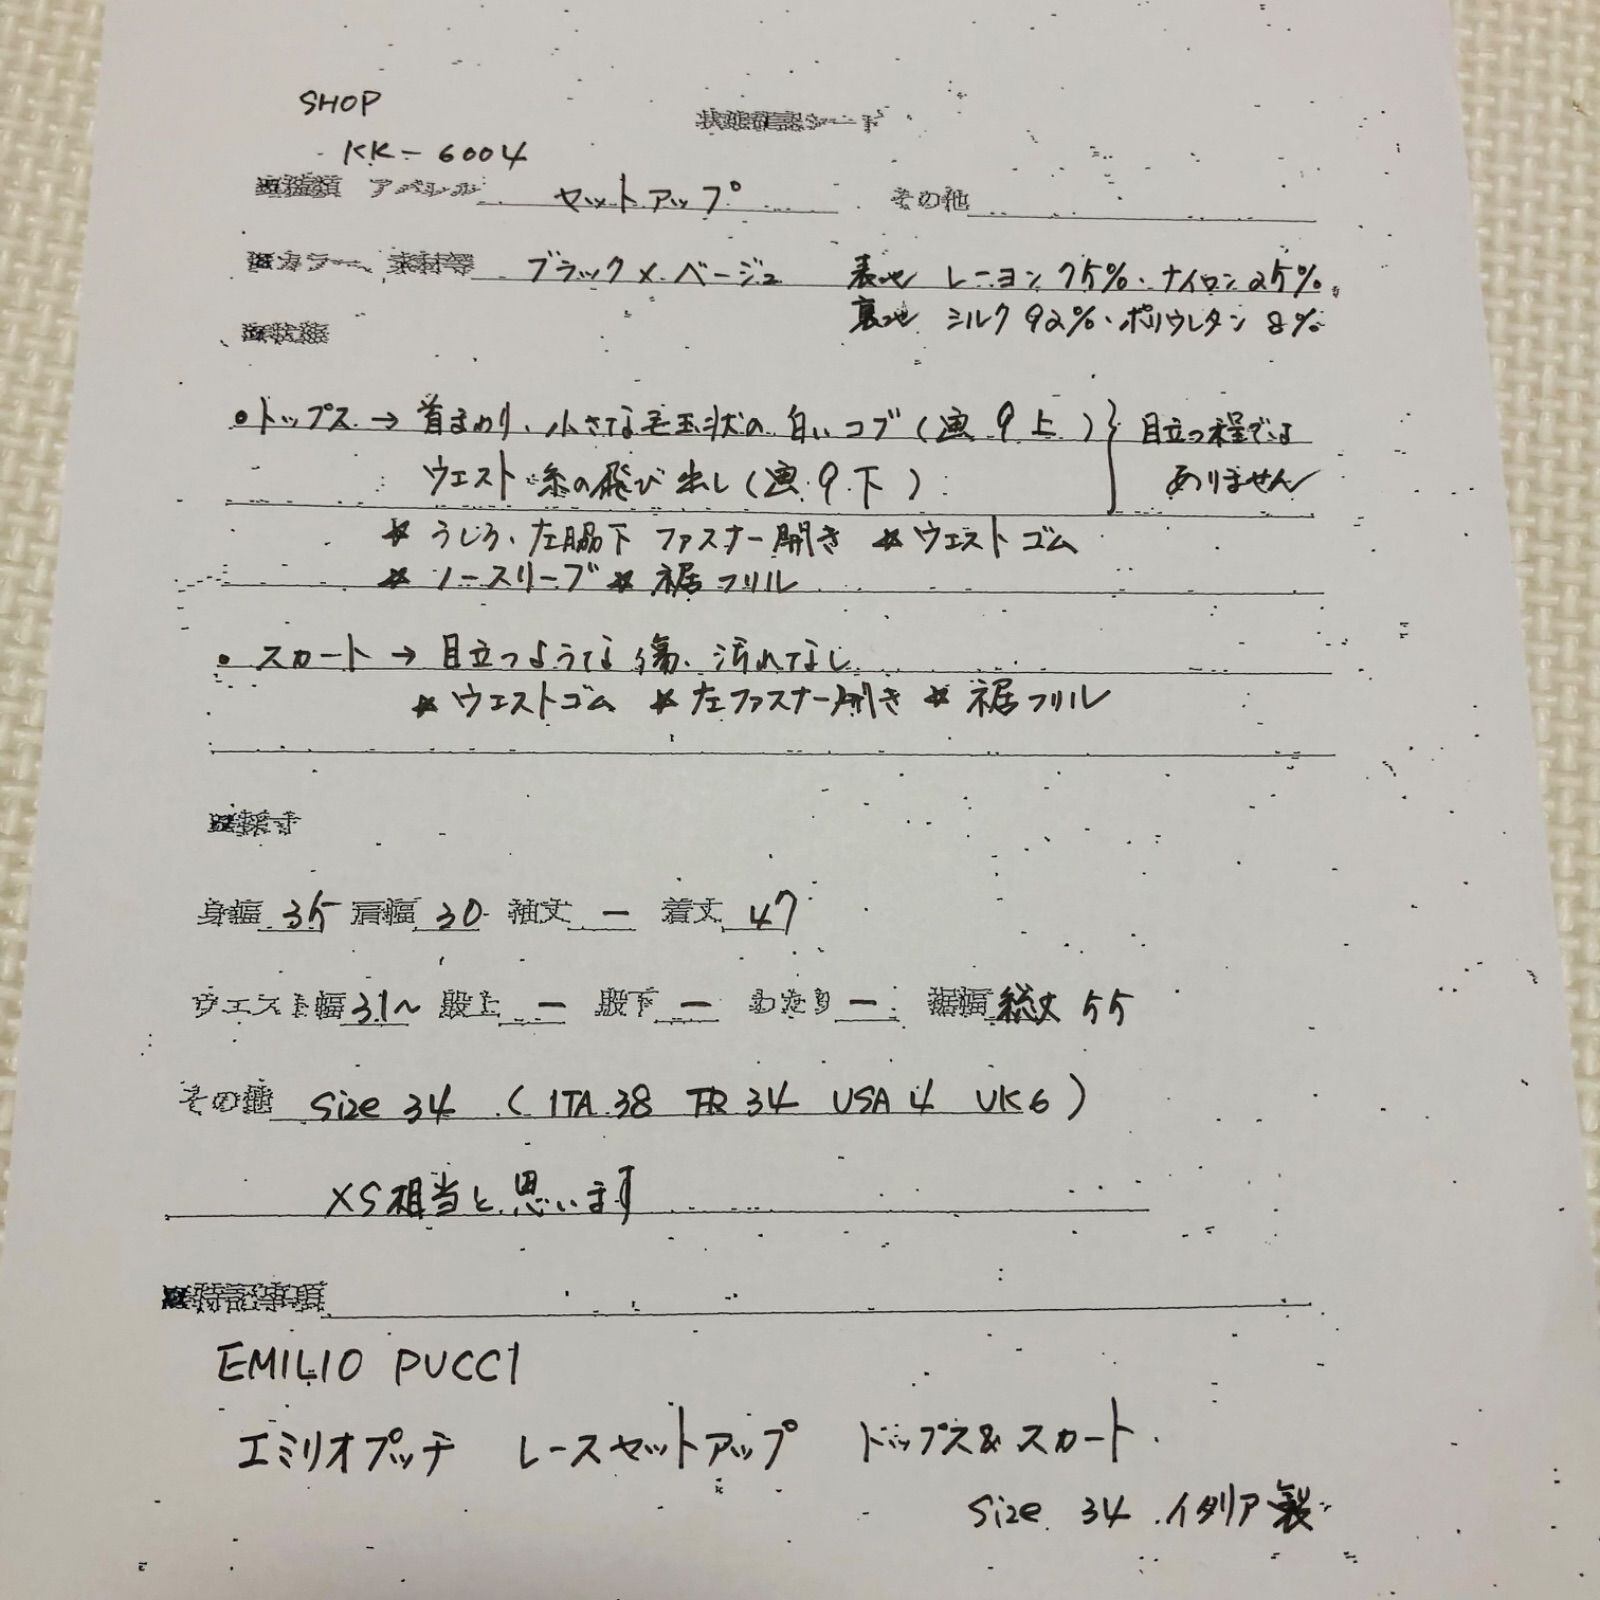 SHOP
状態確認シート
KK-6004
■種類 アパレル セットアップ その他
■カラー、素材等 ブラック×ベージュ 表地 レーヨン75%・ナイロン25%
裏地 シルク92%・ポリウレタン8%
■状態
•トップス→首まわり、小さな毛玉状の白いコブ(画9上) 目立つ程では
ウエスト 糸の飛び出し(画9下) ありません
＊うしろ、左脇下 ファスナー開き ＊ウエストゴム
＊ノースリーブ ＊裾フリル
•スカート→目立つような傷、汚れなし
＊ウエストゴム ＊左ファスナー開き ＊裾フリル
■採寸
身幅 35 肩幅 30 袖丈 ー 着丈 47
ウエスト幅 31〜 股上 ー 股下 ー わたり ー 裾幅 総丈 55
その他 Size 34 (ITA 38 FR 34 USA 4 UK 6)
XS相当と思います
■特記事項
EMILIO PUCCI
エミリオプッチ レースセットアップ トップス&スカート
Size 34 イタリア製